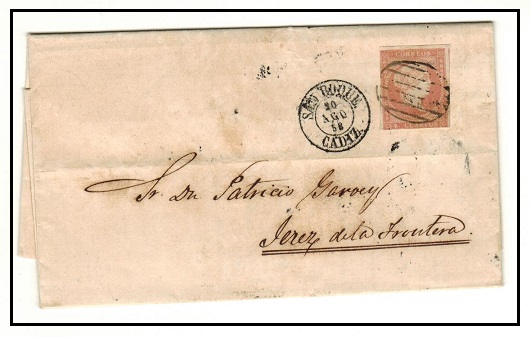 CORREOS
SAN ROQUE
20
AGO
58
CADIZ
Sr. Dn Patricio Garvey
Jerez de la Frontera.